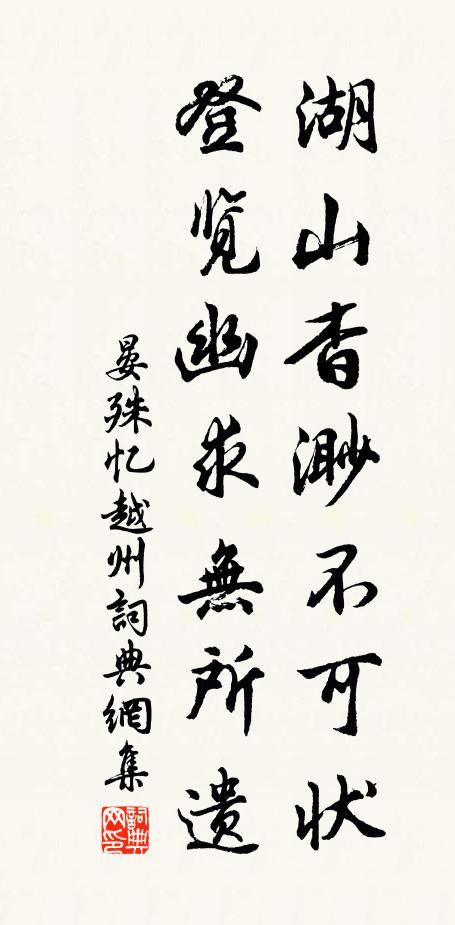 湖山杳渺不可状
登览幽求無所遗
晏殊忆越州詞典網集
詞典网印